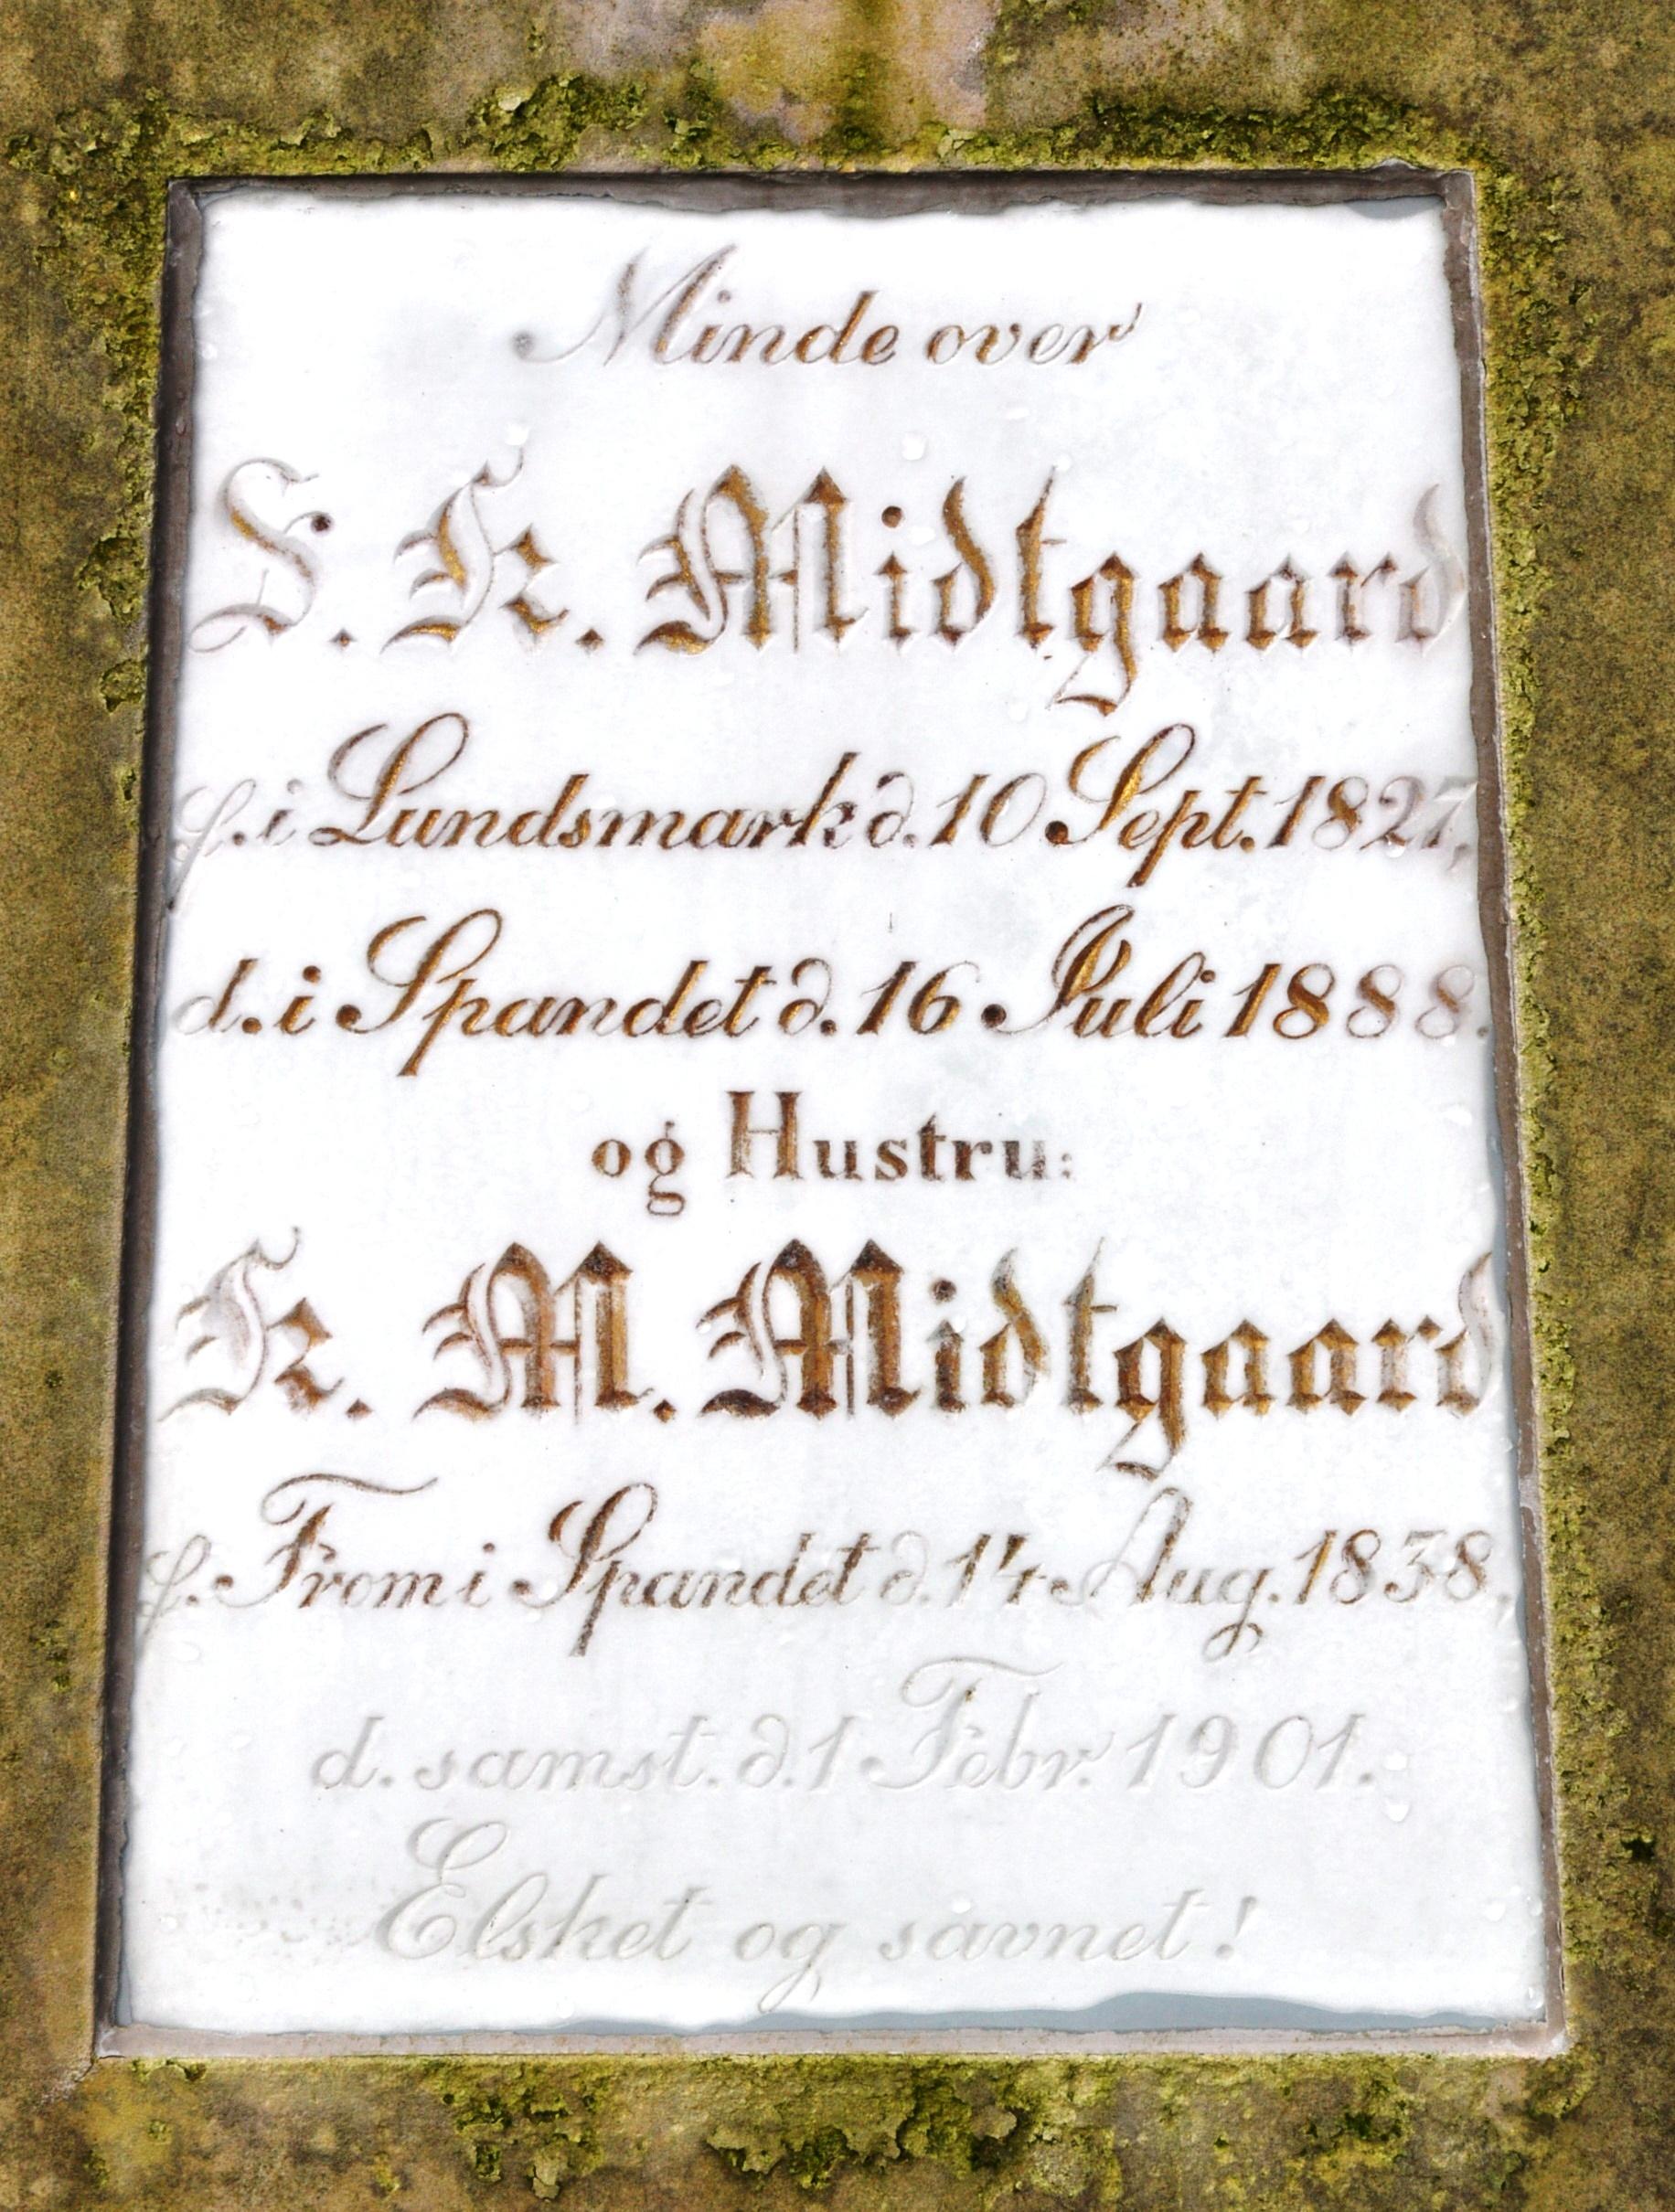 Minde over
S. K. Midtgaard
f. i Lundsmark d. 10 Sept. 1827,
d. i Spandet d. 16 Juli 1888.
og Hustru:
K. M. Midtgaard
f. From i Spandet d. 14 Aug. 1838,
d. samst. d. 1 Febr. 1901.
Elsket og savnet!